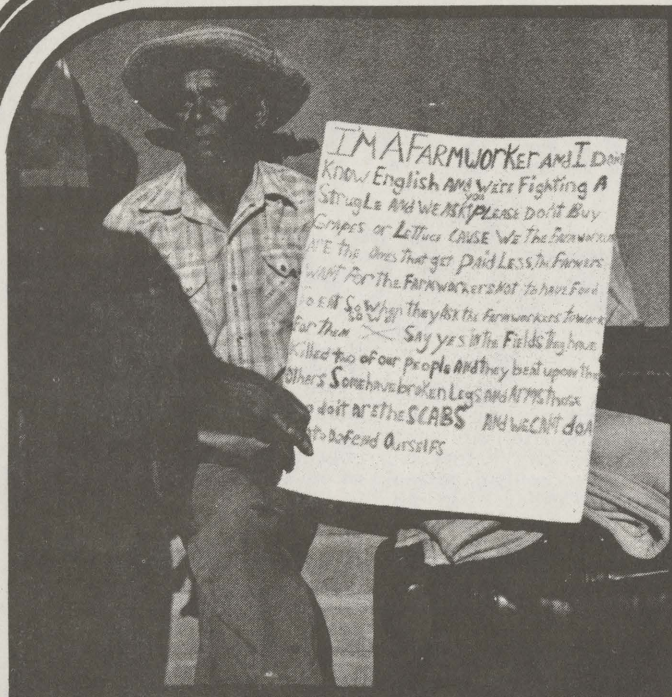 I'M A FARMWORKER AND I DON'T
KNOW English AND we're Fighting A
you
StruggLe AND WE ASK PLEASE Don't Buy
Grapes or Lettuce CAUSE WE the Farmworkers
ARE the Ones that get Paid Less, the Farmers
WANT For the FARMworkers Not to have Food
to EAT So When they Ask the farmworkers to work
for them Say yes in the Fields they have
Killed two of our people And they beat upon the
Others Some have broken Legs and ARMS those
do it are the SCABS AND we CAN'T do A
to Defend Ourselfs